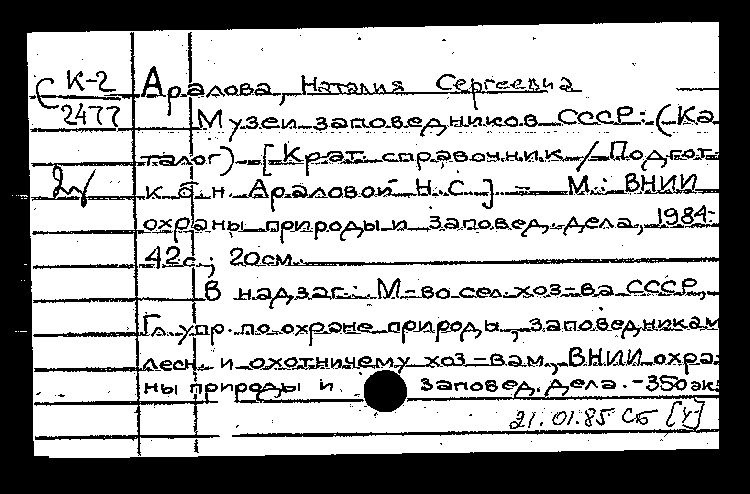 К-2 Аралова, Наталия Сергеевна
2477 Музеи заповедников СССР: (Ка
талог) [Крат. справочник / Подгот.
2у к.б.н. Араловой Н.С.] - М.: ВНИИ
охраны природы и заповед. дела, 1984.-
42с.; 20см.
В надзаг.: М-во сел. хоз-ва СССР,
Гл. упр. по охране природы, заповедникам
лесн. и охотничьему хоз-вам, ВНИИ охра-
ны природы и заповед. дела. -350 экз
21.01.85 СБ [У]